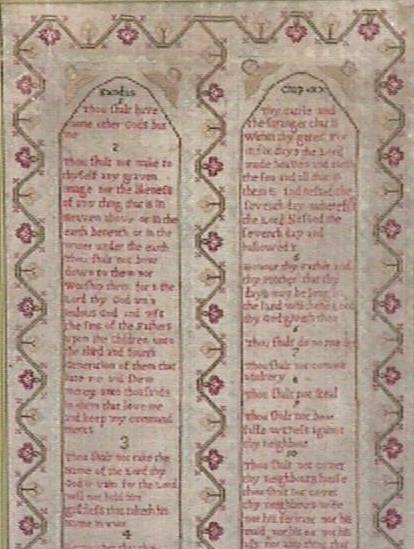 Exodus
1
Thou shalt have
none other Gods but
me
2
Thou shalt not make to
thyself any graven
image nor the likeness
of any thing that is in
Heaven above or in the
earth beneath or in the
water under the earth
Thou shalt not bow
down to them nor
Worship them for I the
Lord thy God am a
jealous God and
the sins of the Fathers
upon the Children unto
the third and fourth
Generation of them that
hate me and shew
mercy unto thousands
in them that love me
and keep my command
ments
3
Thou shalt not take the
Name of the Lord thy
God in vain for the Lord
will not hold him
guiltless that taketh his
Name in vain
4
Chap XX
thy cattle and
the stranger that is
Within thy gates For
in six days the Lord
made heaven and earth
the sea and all that in
them is and rested the
seventh day wherefore
the Lord blessed the
seventh day and
hallowed it
5
Honour thy Father and
thy Mother that thy
days may be long in
the land which the Lord
thy God giveth thee
6
Thou shalt do no
7
Thou shalt not commit
adultery
8
Thou shalt not steal
9
Thou shalt not bear
false witness against
thy neighbour
10
Thou shalt not covet
thy neighbours house
thou shalt not covet
thy neighbours wife
nor his servant nor his
maid nor his ox nor his